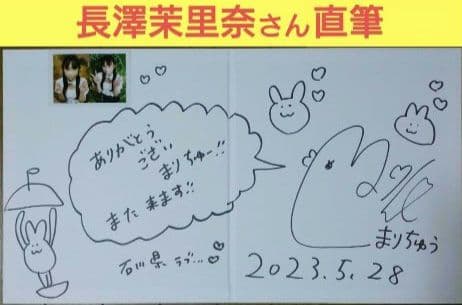 長澤茉里奈さん直筆
ありがとう
ござい
まりちゅー!!
また来ます!!
石川県ラブ...
まりちゅう
2023.5.28